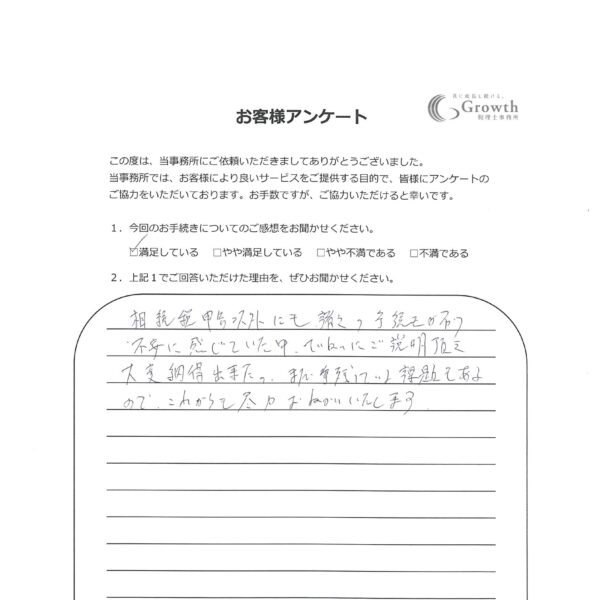 共に成長し続ける。
Growth
税理士事務所
お客様アンケート
この度は、当事務所にご依頼いただきましてありがとうございました。
当事務所では、お客様により良いサービスをご提供する目的で、皆様にアンケートの
ご協力をいただいております。お手数ですが、ご協力いただけると幸いです。
1．今回のお手続きについてのご感想をお聞かせください。
☑満足している □やや満足している □やや不満である □不満である
2．上記1でご回答いただけた理由を、ぜひお聞かせください。
相続税申告以外にも 諸々の手続きがあり
不安に感じていた中、ていねいにご説明頂き
大変納得出来ました。まだ 課題もある
ので、これからも尽力おねがいいたします。